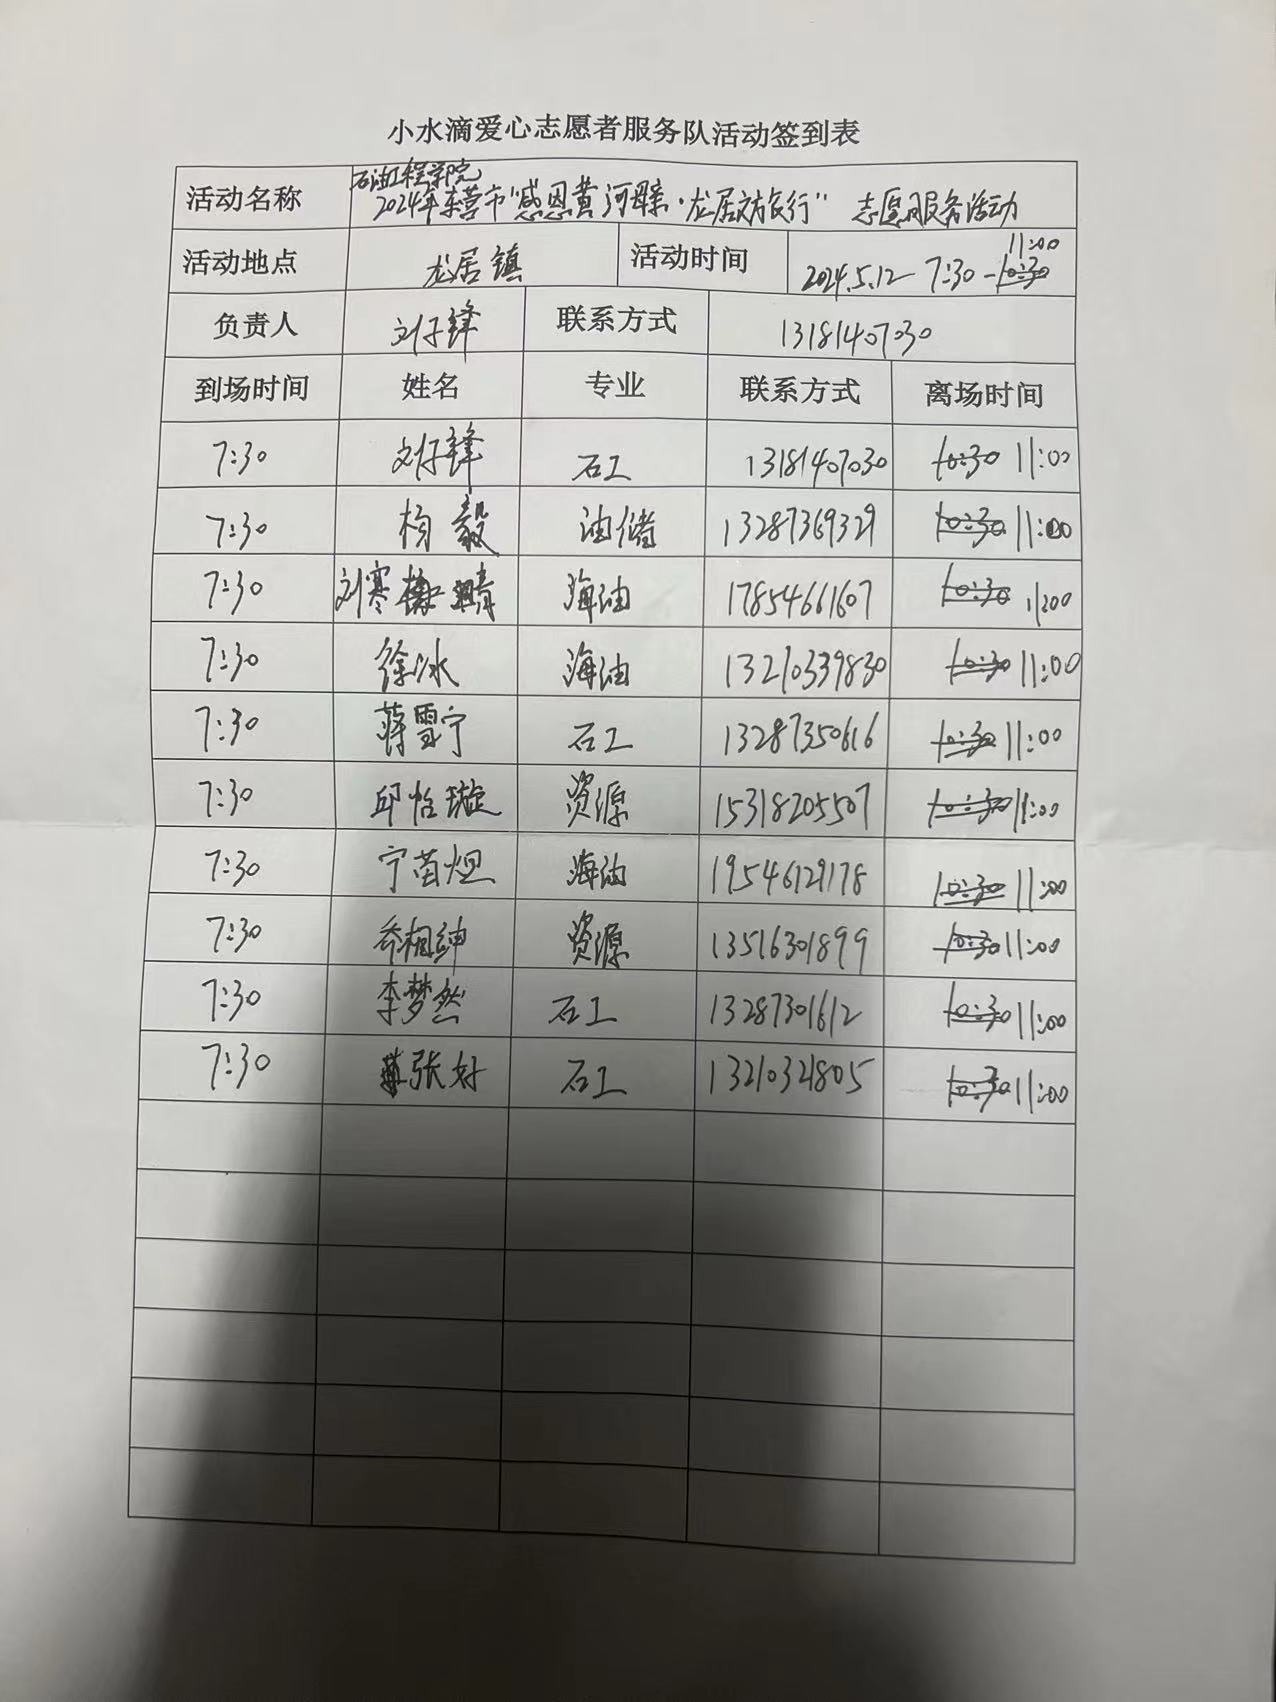 小水滴爱心志愿者服务队活动签到表
活动名称 石油工程学院
2024年东营市“感恩黄河母亲·龙居文旅行” 志愿服务活动
活动地点 龙居镇 活动时间 2024.5.12 7:30-10:30 11:00
负责人 刘仔锋 联系方式 13181407030
到场时间 姓名 专业 联系方式 离场时间
7:30 刘仔锋 石工 13181407030 10:30 11:00
7:30 杨毅 油储 13287369329 10:30 11:00
7:30 刘寒晴 海油 17854661607 10:30 11:00
7:30 徐冰 海油 13210339830 10:30 11:00
7:30 蒋雪宁 石工 13287350616 10:30 11:00
7:30 邱怡璇 资源 15318205507 10:30 11:00
7:30 宁苗 海油 19546129178 10:30 11:00
7:30 乔相绅 资源 13516301899 10:30 11:00
7:30 李梦然 石工 13287301612 10:30 11:00
7:30 张好 石工 13210321805 10:30 11:00